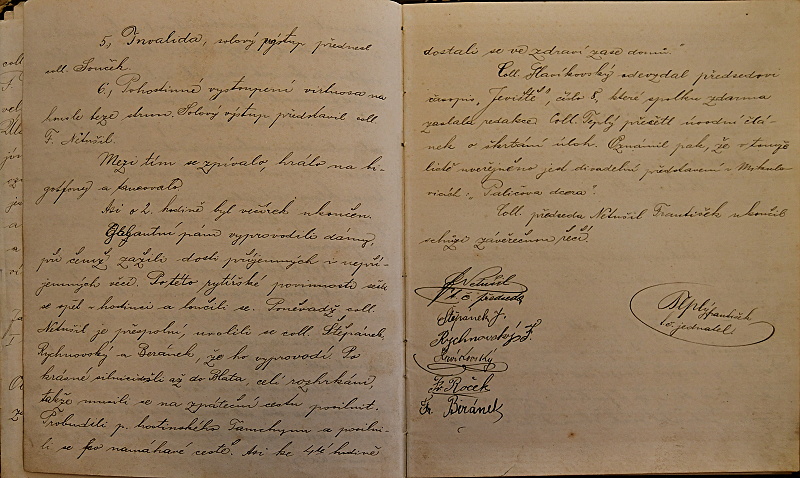 5, Invalida, solový výstup přednesl
coll. Souček.
6., Pohostinné vystoupení virtuosa na
housle beze strun. Solový výstup představil coll.
F. Netušil.
Mezi tím se zpívalo, hrálo na bi-
gotfony a tancovalo.
Asi o 2. hodině byl večírek ukončen.
Elegantní páni vyprovodili dámy,
při čemž zažili dosti příjemných i nepří-
jemných věcí. Po této rytířské povinnosti sešli
se opět v hostinci a loučili se. Poněvadž coll.
Netušil je přespolní, uvolili se coll. Štěpánek,
Rychnovský a Beránek, že ho vyprovodí. Po
krásné silnici došli až do Blata, celí rozhrkaní,
takže museli se na zpáteční cestu posilnit.
Probudili p. hostinského a posilni-
li se po namáhavé cestě. Asi ke 4té hodině
dostali se ve zdraví zase domů."
Coll. Havíkovský odevzdal předsedovi
časopis "Jeviště", číslo 8, které spolku zdarma
zaslala redakce. Coll. Teplý přečetl úvodní člá-
nek o škrtání úloh. Oznámil pak, že v tomže
listě uveřejněno jest divadelní představení v Mikulo-
vicích: "Paličova dcera".
Coll. předseda Netušil František ukončil
schůzi závěrečnou řečí.
F. Netušil
t. č. předseda
Štěpánek J.
Rychnovský F.
Havíkovský
Fr. Roček
Fr. Beránek
Teplý František
t. č. jednatel